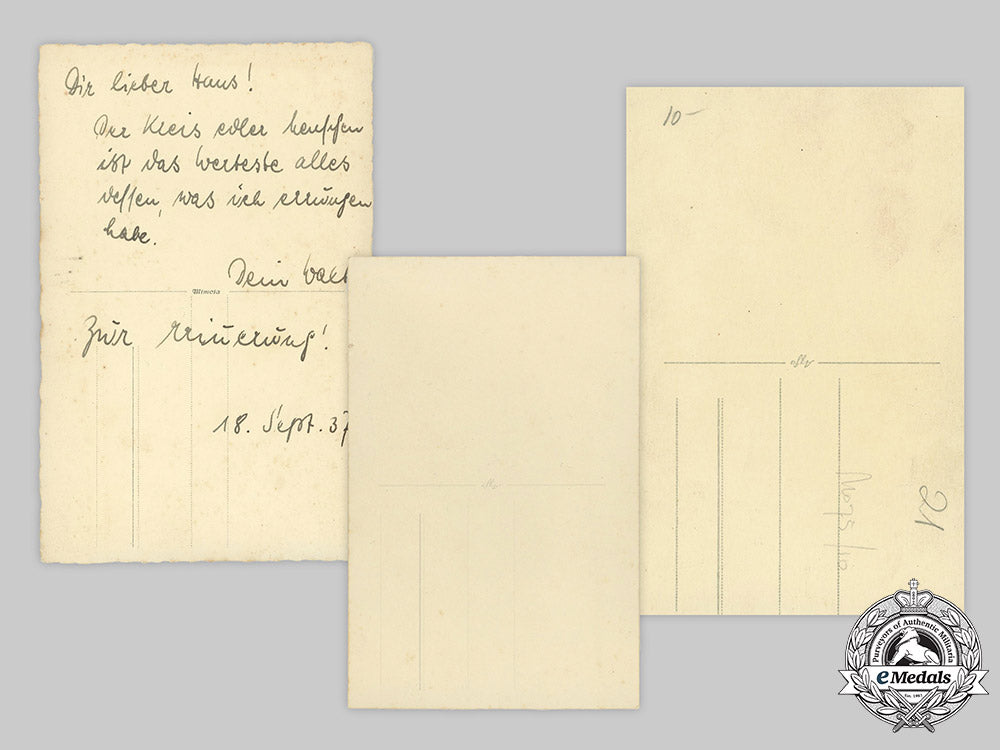 Dir lieber Hans!
Der Kreis edler Menschen
ist das Werteste alles
dessen, was ich errungen
habe.
Dein Walt
Mimosa
Zur Erinnerung!
18. Sept. 37
10-
21
Purveyors of Authentic Militaria
eMedals